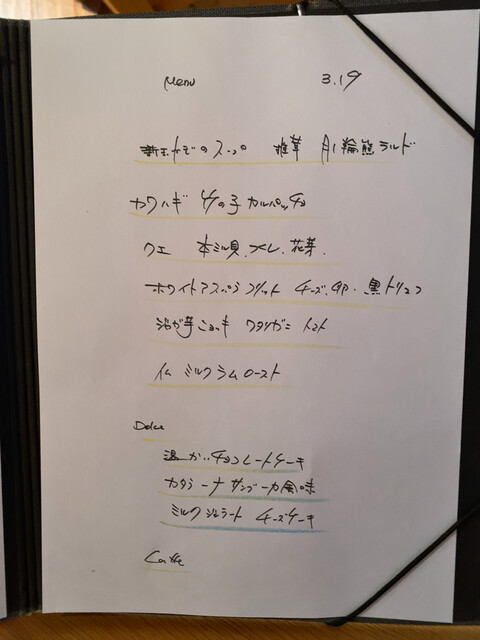 Menu 3.19
新玉ねぎのスープ 椎茸 月ノ輪熊ラルド
カワハギ 竹の子 カルパッチョ
クエ 本ミル貝、メレ、花芽.
ホワイトアスパラ フリット チーズ、卵・黒トリュフ
じゃが芋ニョッキ ワタリガニ トマト
仏 ミルクラムロースト
Dolce
温かいチョコレートケーキ
カタラーナ サンブーカ風味
ミルクジェラート チーズケーキ
Caffe